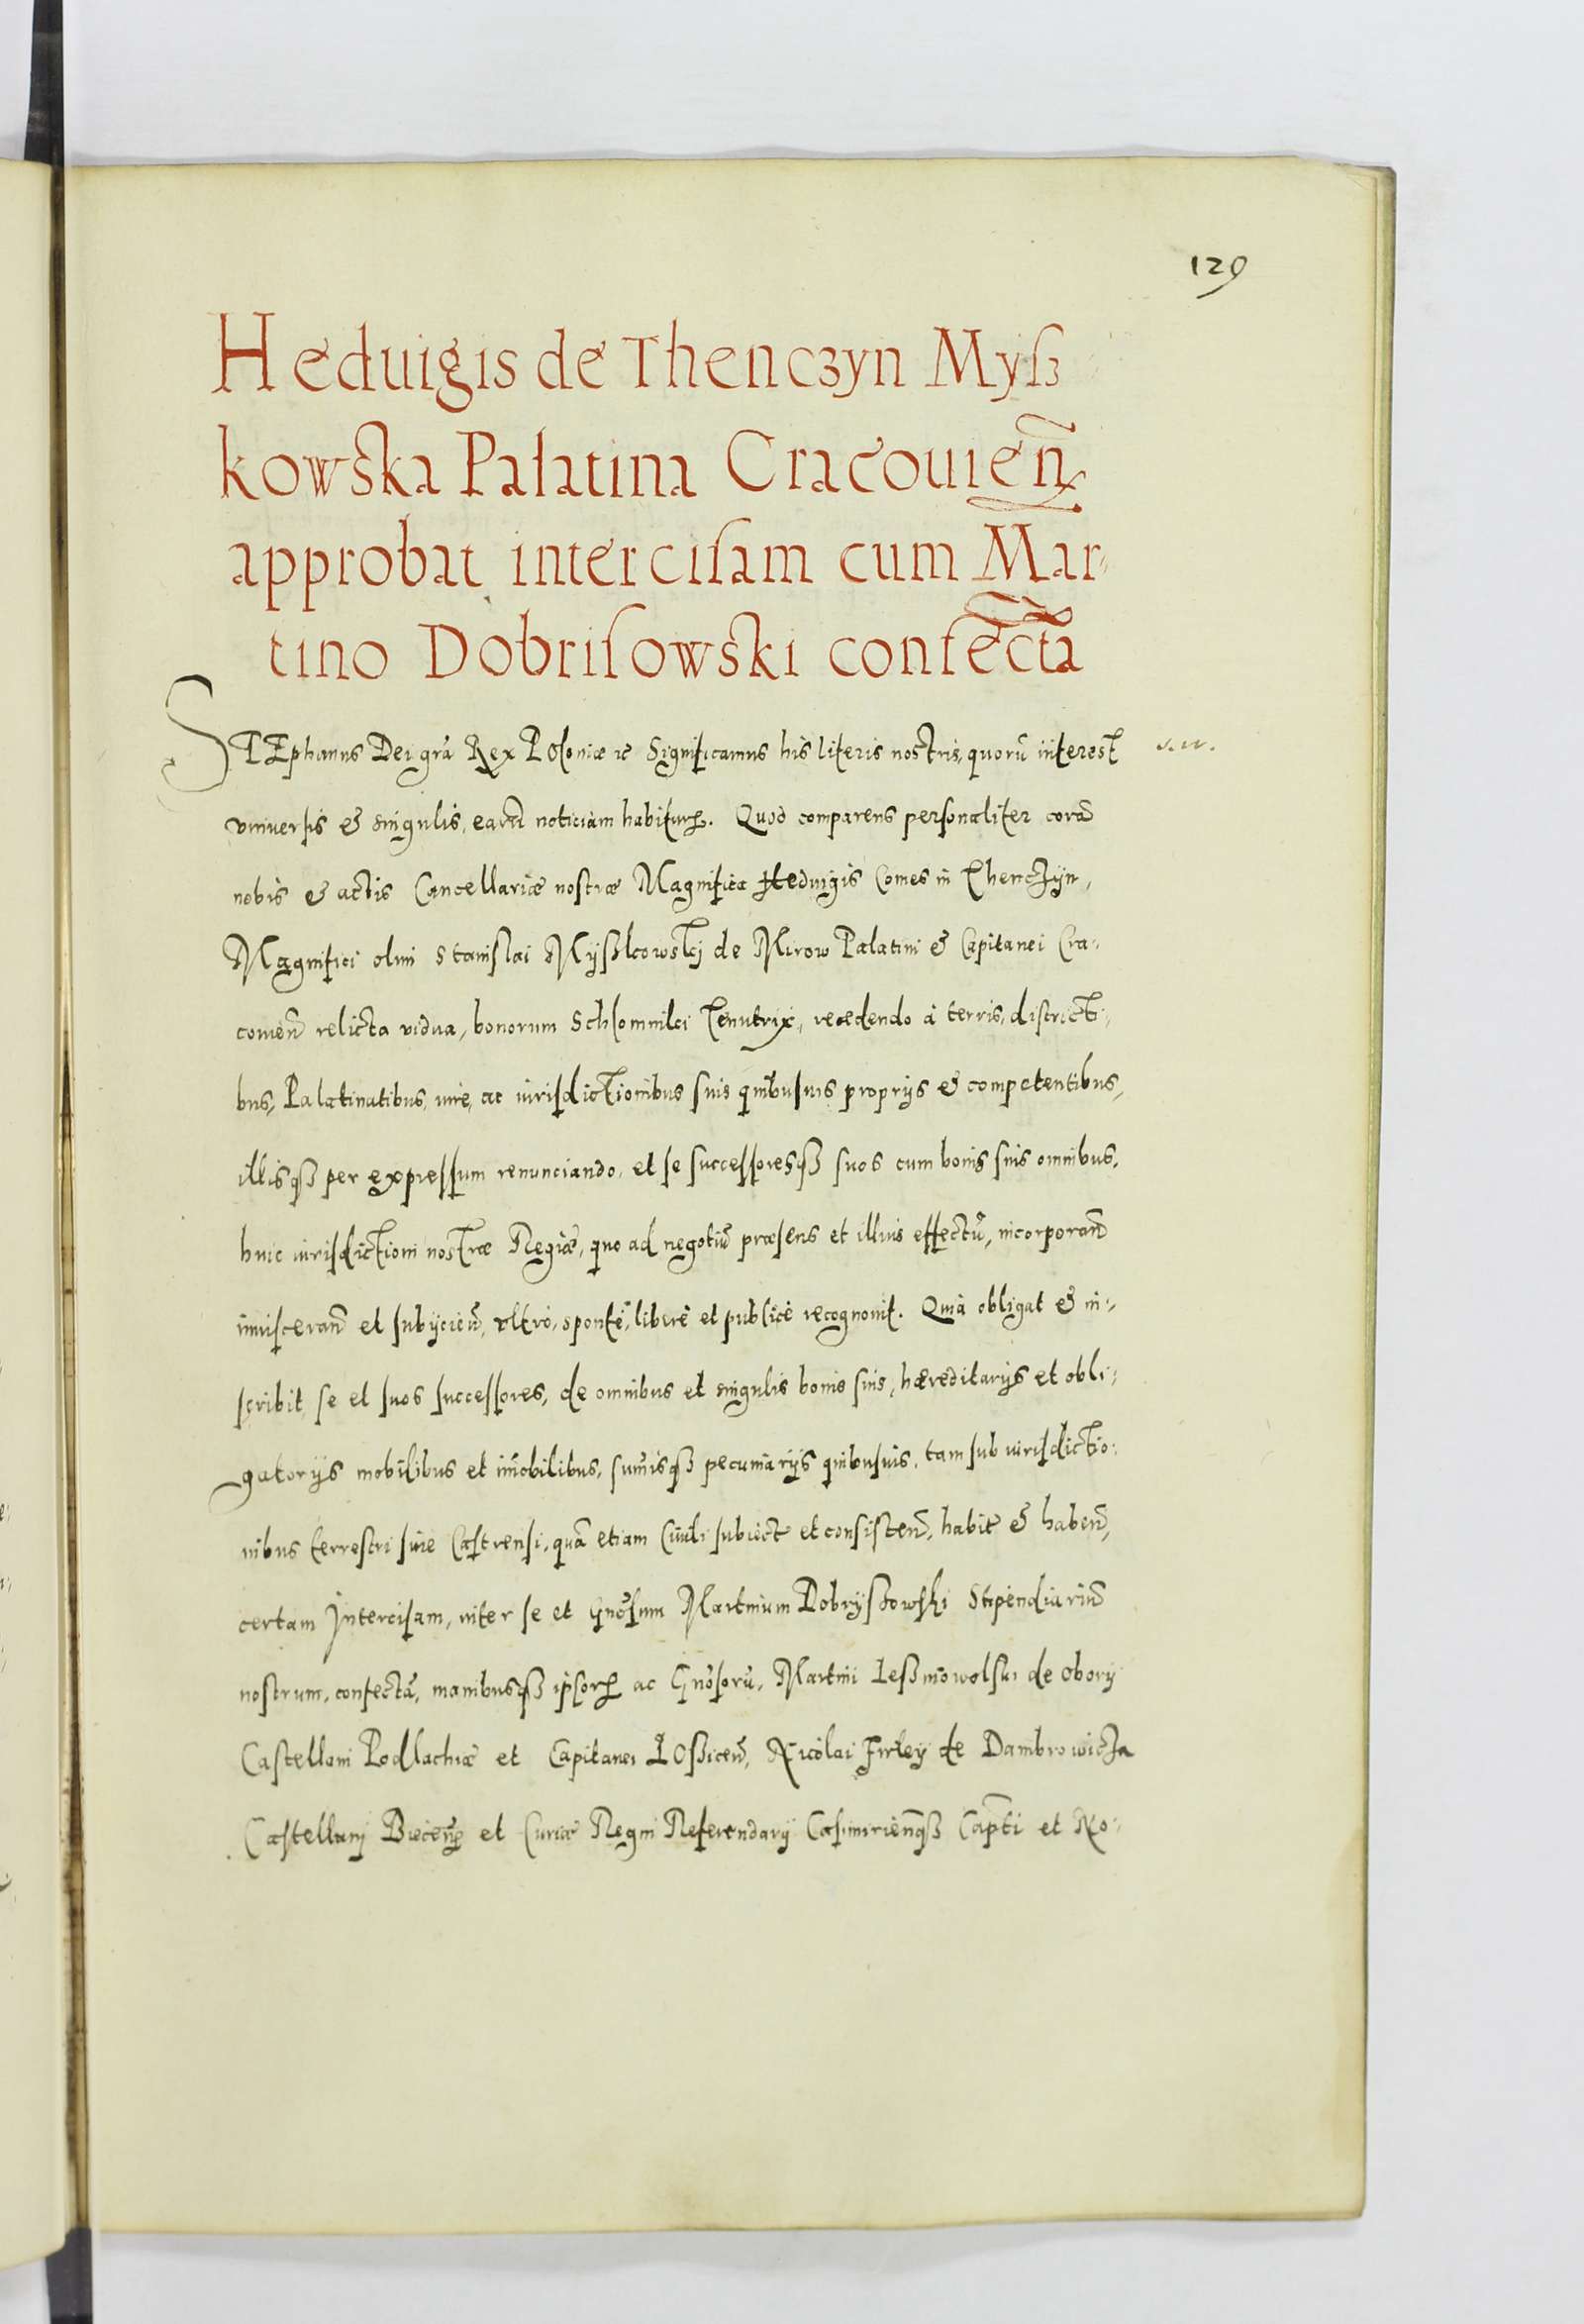 129
Heduigis de Thenczyn Mysz
kowska Palatina Cracouien̄
approbat intercisam cum Mar-
tino Dobrisowski confecta
STEphanus Dei grā Rex POloniæ &c Significamus his literis nostris, quorū interest
vniuersis & singulis, earū noticiam habiturꝝ. Quod comparens personaliter corā
nobis & actis Cancellariæ nostræ Magnifica Heduigis Comes in Thenczÿn,
Magnifici olim Stanislai Mÿszkowskj de Mirow Palatini & Capitanei Cra-
couien̄ relicta vidua, bonorum Schlomniki Tenutrix, recedendo à terris, districti-
bus, Palatinatibus, iure, ac iurisdictionibus suis quibusuis proprijs & competentibus,
illisqꝫ per expressum renunciando, et se successoresqꝫ suos cum bonis suis omnibus,
huic iurisdictioni nostræ Regiæ, quo ad negotiū præsens et illius effectū, incorporan̄
inuisceran̄ et subijcien̄, vltrò, spontè, liberè et publicè recognouit. Quia obligat & in-
scribit se et suos successores, de omnibus et singulis bonis suis, hæreditarijs et obli-
gatorijs mobilibus et im̄obilibus, sum̄isqꝫ pecuniarijs quibusuis, tam sub iurisdictio-
nibus terrestri siue Castrensi, quā etiam Ciuili subiect et consisten̄, habit & haben̄,
certam Intercisam, inter se et Gn̄osum Martinum Dobrÿszowski Stipendiariū
nostrum, confectā, manibusqꝫ ipsorꝝ ac Gn̄osorū, Martini Leszniowolski de oborÿ
Castellani Podlachiæ et Capitanei LOszicen̄, Nicolai Firleÿ de Dambrowicza
Castellanj Biecen̄ et Curiæ Regni Referendarij Casimirien̄qꝫ Capti et No-